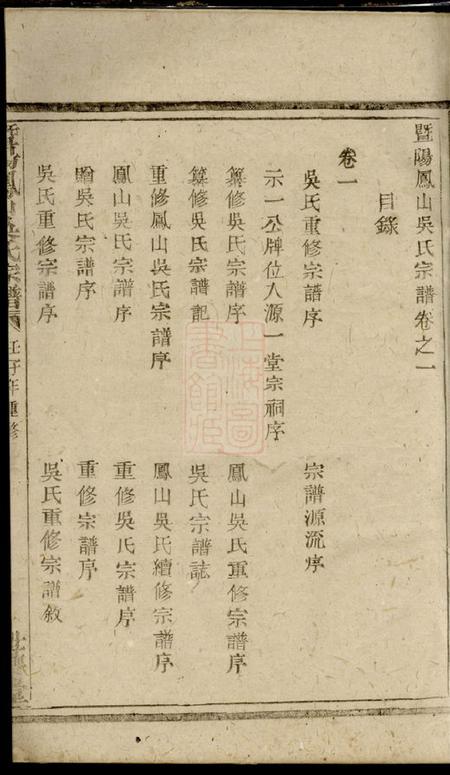 暨陽鳳山吳氏宗譜卷之一
目錄
卷一
吳氏重修宗譜序
宗譜源流序
示一公牌位入源一堂宗祠序
纂修吳氏宗譜序
鳳山吳氏重修宗譜序
纂修吳氏宗譜記
吳氏宗譜誌
重修鳳山吳氏宗譜序
鳳山吳氏續修宗譜序
鳳山吳氏宗譜序
重修吳氏宗譜序
贈吳氏宗譜序
重修宗譜序
吳氏重修宗譜序
吳氏重修宗譜敘
暨陽鳳山吳氏宗譜
壬子年重修
上海圖書館藏